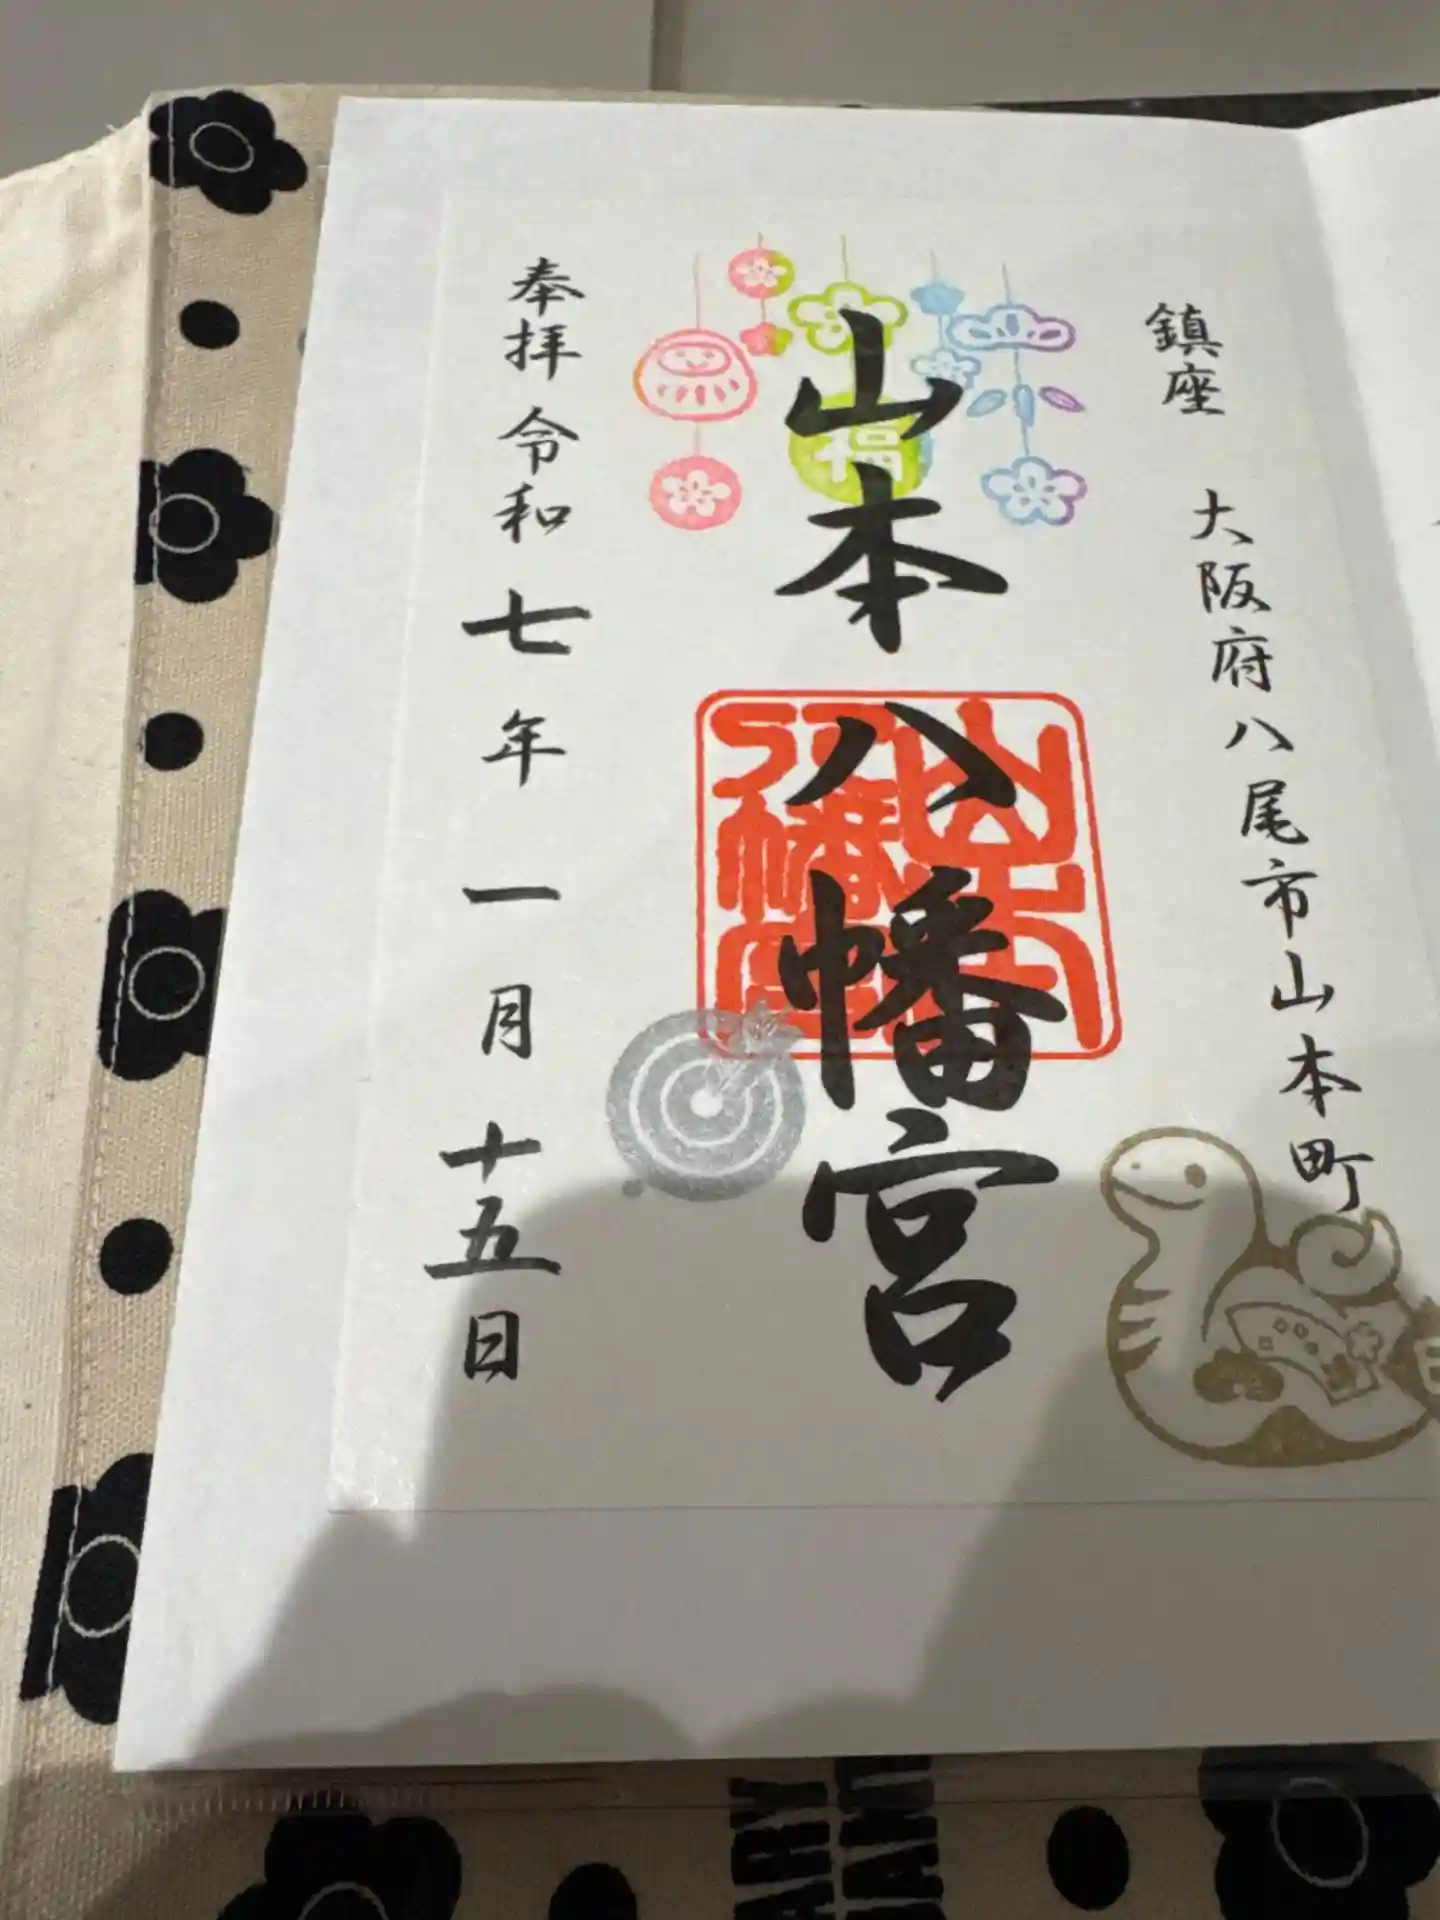 鎮座 大阪府八尾市山本町
福
山本八幡宮
山本八幡宮
奉拝 令和七年一月十五日